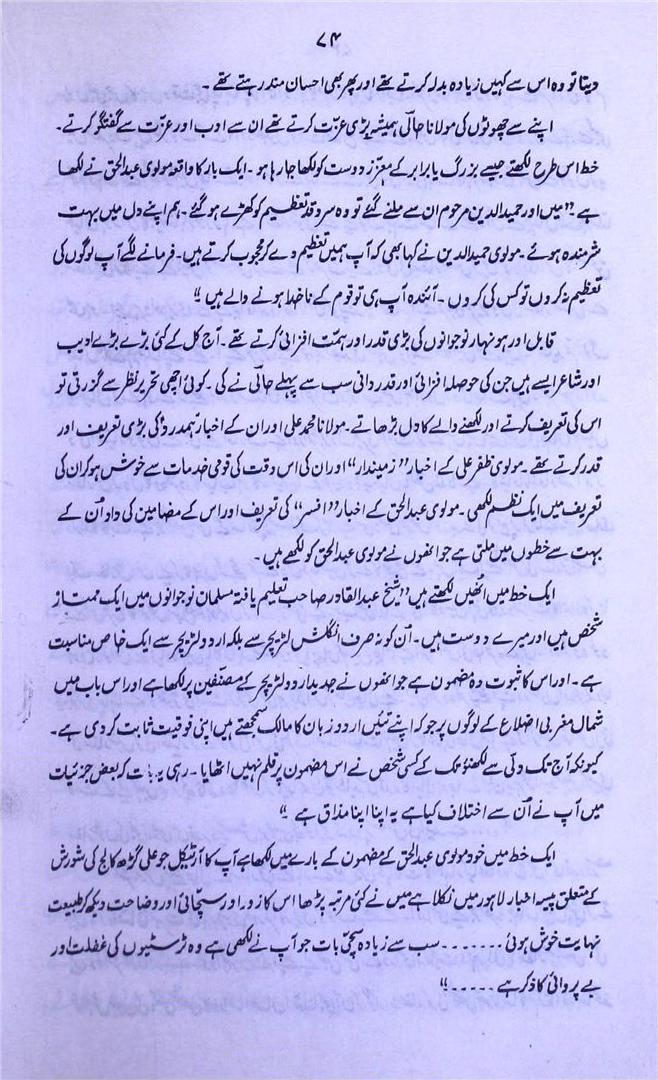 ۷۴
دیتا تو وہ اس سے کہیں زیادہ بدلہ کرتے تھے اور پھر بھی احسان مند رہتے تھے ۔
اپنے سے چھوٹوں کی مولانا حالی ہمیشہ بڑی عزّت کرتے تھے ان سے ادب اور عزّت سے گفتگو کرتے۔
خط اس طرح لکھتے جیسے بزرگ یا برابر کے معزّز دوست کو لکھا جا رہا ہو ۔ ایک بار کا واقعہ مولوی عبدالحق نے لکھا
ہے ”میں اور حمید الدین مرحوم ان سے ملنے گئے تو وہ سروقد تعظیم کو کھڑے ہو گئے ۔ ہم اپنے دل میں بہت
شرمندہ ہوئے ۔ مولوی حمید الدین نے کہا بھی کہ آپ ہمیں تعظیم دے کر محجوب کرتے ہیں۔ فرمانے لگے آپ لوگوں کی
تعظیم نہ کروں تو کس کی کروں ۔ آئندہ آپ ہی تو قوم کے ناخدا ہونے والے ہیں“
قابل اور ہونہار نوجوانوں کی بڑی قدر اور ہمّت افزائی کرتے تھے ۔ آج کل کے کئی بڑے بڑے ادیب
اور شاعر ایسے ہیں جن کی حوصلہ افزائی اور قدردانی سب سے پہلے حالی نے کی ۔ کوئی اچھی تحریر نظر سے گزرتی تو
اس کی تعریف کرتے اور لکھنے والے کا دل بڑھاتے ۔ مولانا محمد علی اور ان کے اخبار ہمدرد کی بڑی تعریف اور
قدر کرتے تھے ۔ مولوی ظفر علی کے اخبار ”زمیندار“ اور ان کی اس وقت کی قومی خدمات سے خوش ہو کر ان کی
تعریف میں ایک نظم لکھی ۔ مولوی عبدالحق کے اخبار ”افسر“ کی تعریف اور اس کے مضامین کی داد اُن کے
بہت سے خطوں میں ملتی ہے جو انھوں نے مولوی عبدالحق کو لکھے ہیں ۔
ایک خط میں انھیں لکھتے ہیں ”شیخ عبدالقادر صاحب تعلیم یافتہ مسلمان نوجوانوں میں ایک ممتاز
شخص ہیں اور میرے دوست ہیں ۔ اُن کو نہ صرف انگلش لٹریچر سے بلکہ اردو لٹریچر سے ایک خاص مناسبت
ہے ۔ اور اس کا ثبوت وہ مضمون ہے جو انھوں نے جدید اردو لٹریچر کے مصنفین پر لکھا ہے اور اس باب میں
شمال مغربی اضلاع کے لوگوں پر جو کہ اپنے تئیں اردو زبان کا مالک سمجھتے ہیں اپنی فوقیت ثابت کر دی ہے ۔
کیونکہ آج تک دلّی سے لکھنؤ تک کے کسی شخص نے اس مضمون پر قلم نہیں اٹھایا ۔ رہی یہ بات کہ بعض جزئیات
میں آپ نے اُن سے اختلاف کیا ہے یہ اپنا اپنا مذاق ہے“
ایک خط میں خود مولوی عبدالحق کے مضمون کے بارے میں لکھا ہے آپ کا آرٹیکل جو علی گڑھ کالج کی شورش
کے متعلق پیسہ اخبار لاہور میں نکلا ہے میں نے کئی مرتبہ پڑھا اس کا زور اور سچّائی اور وضاحت دیکھ کر طبیعت
نہایت خوش ہوئی ۔۔۔۔۔۔۔ سب سے زیادہ سچّی بات جو آپ نے لکھی ہے وہ ٹرسٹیوں کی غفلت اور
بے پروائی کا ذکر ہے ۔۔۔۔۔“